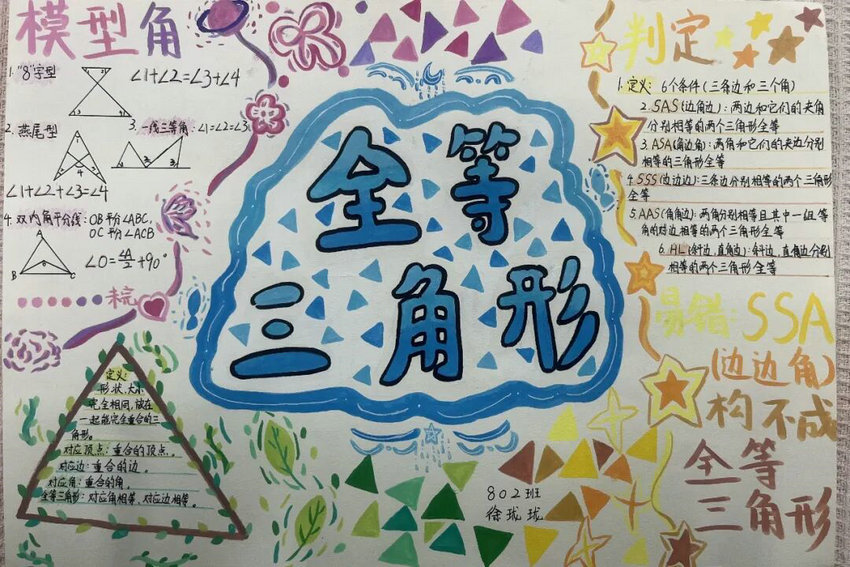 模型角
1."8"字型
∠1+∠2=∠3+∠4
2.燕尾型
3.一线三等角:∠1=∠2=∠3
∠1+∠2+∠3=∠4
4.双内角平分线:OB平分∠ABC,
OC平分∠ACB
A
B
C
∠O=½∠A+90°
全等
三角形
判定
1.定义:6个条件(三条边和三个角)
2.SAS(边角边):两边和它们的夹角
分别相等的两个三角形全等
3.ASA(角边角):两角和它们的夹边分别
相等的三角形全等
4.SSS(边边边):三条边分别相等的两个三角形
全等
5.AAS(角角边):两角分别相等且其中一组等
角的对边相等的两个三角形全等
6.HL(斜边,直角边):斜边,直角边分别
相等的两个三角形全等
易错:SSA
(边边角)
构不成
全等
三角形
定义
形状,大小
完全相同,放在
一起能完全重合的三
角形。
对应顶点:重合的顶点。
对应边:重合的边。
对应角:重合的角。
全等三角形:对应角相等,对应边相等。
802班
徐珑珑